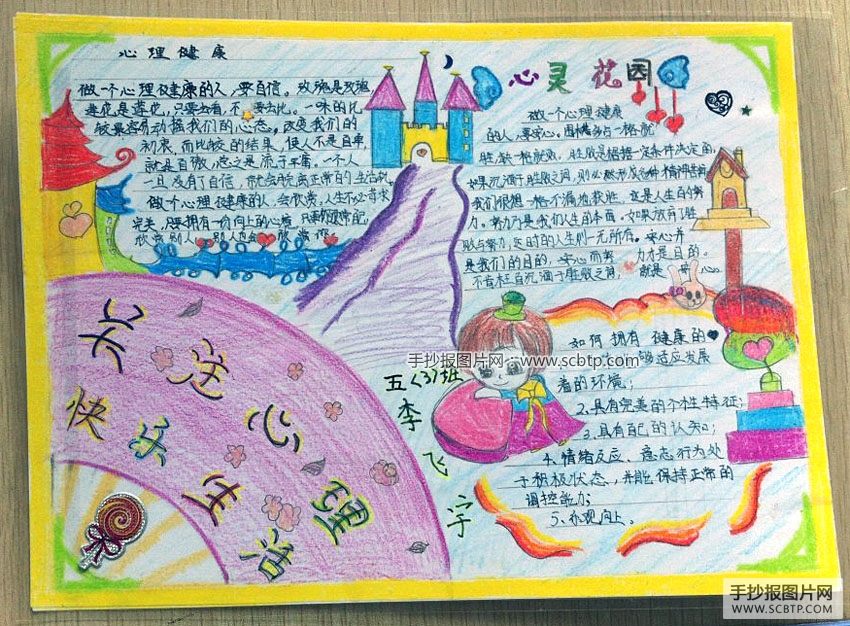 心理健康
做一个心理健康的人,要自信。玫瑰是玫瑰,
莲花是莲花,只要去看,不要去比。一味的比
较最容易动摇我们的心态。改变我们的
初衷,而比较的结果,使人不是自卑
就是自傲,总之是流于平庸。一个人
一旦没有了自信,就会脱离正常的生活轨
做一个心理健康的人,会欣赏,人生不必苛求
完美,只要拥有一份向上的心境
欣赏别人
心灵花园
做一个心理健康
的人,要安心。
胜败是根据一定条件决定的,
如果沉溺于胜败之间,则必然形成各种精神苦
我们很想一帆不满地获胜,这是人生的努
力。努力乃是我们人生的本面。如果放弃了胜
败与努力,定时的人生则一无所有。安心并
是我们的目的,安心而努力才是目的。
不官栏目沉溺于胜败之间,就是
如何拥有健康的
够适应发展
着的环境;
2.具有完美的个性特征;
3.具有自己的认知;
4.情绪反应、意志行为处
于积极状态,并能保持正常的
调控能力;
5、乐观向上。
关注心理
快乐生活
五〈3〉班
李飞宇
手抄报图片网:www.scbtp.com
手抄报图片网
WWW.SCBTP.COM